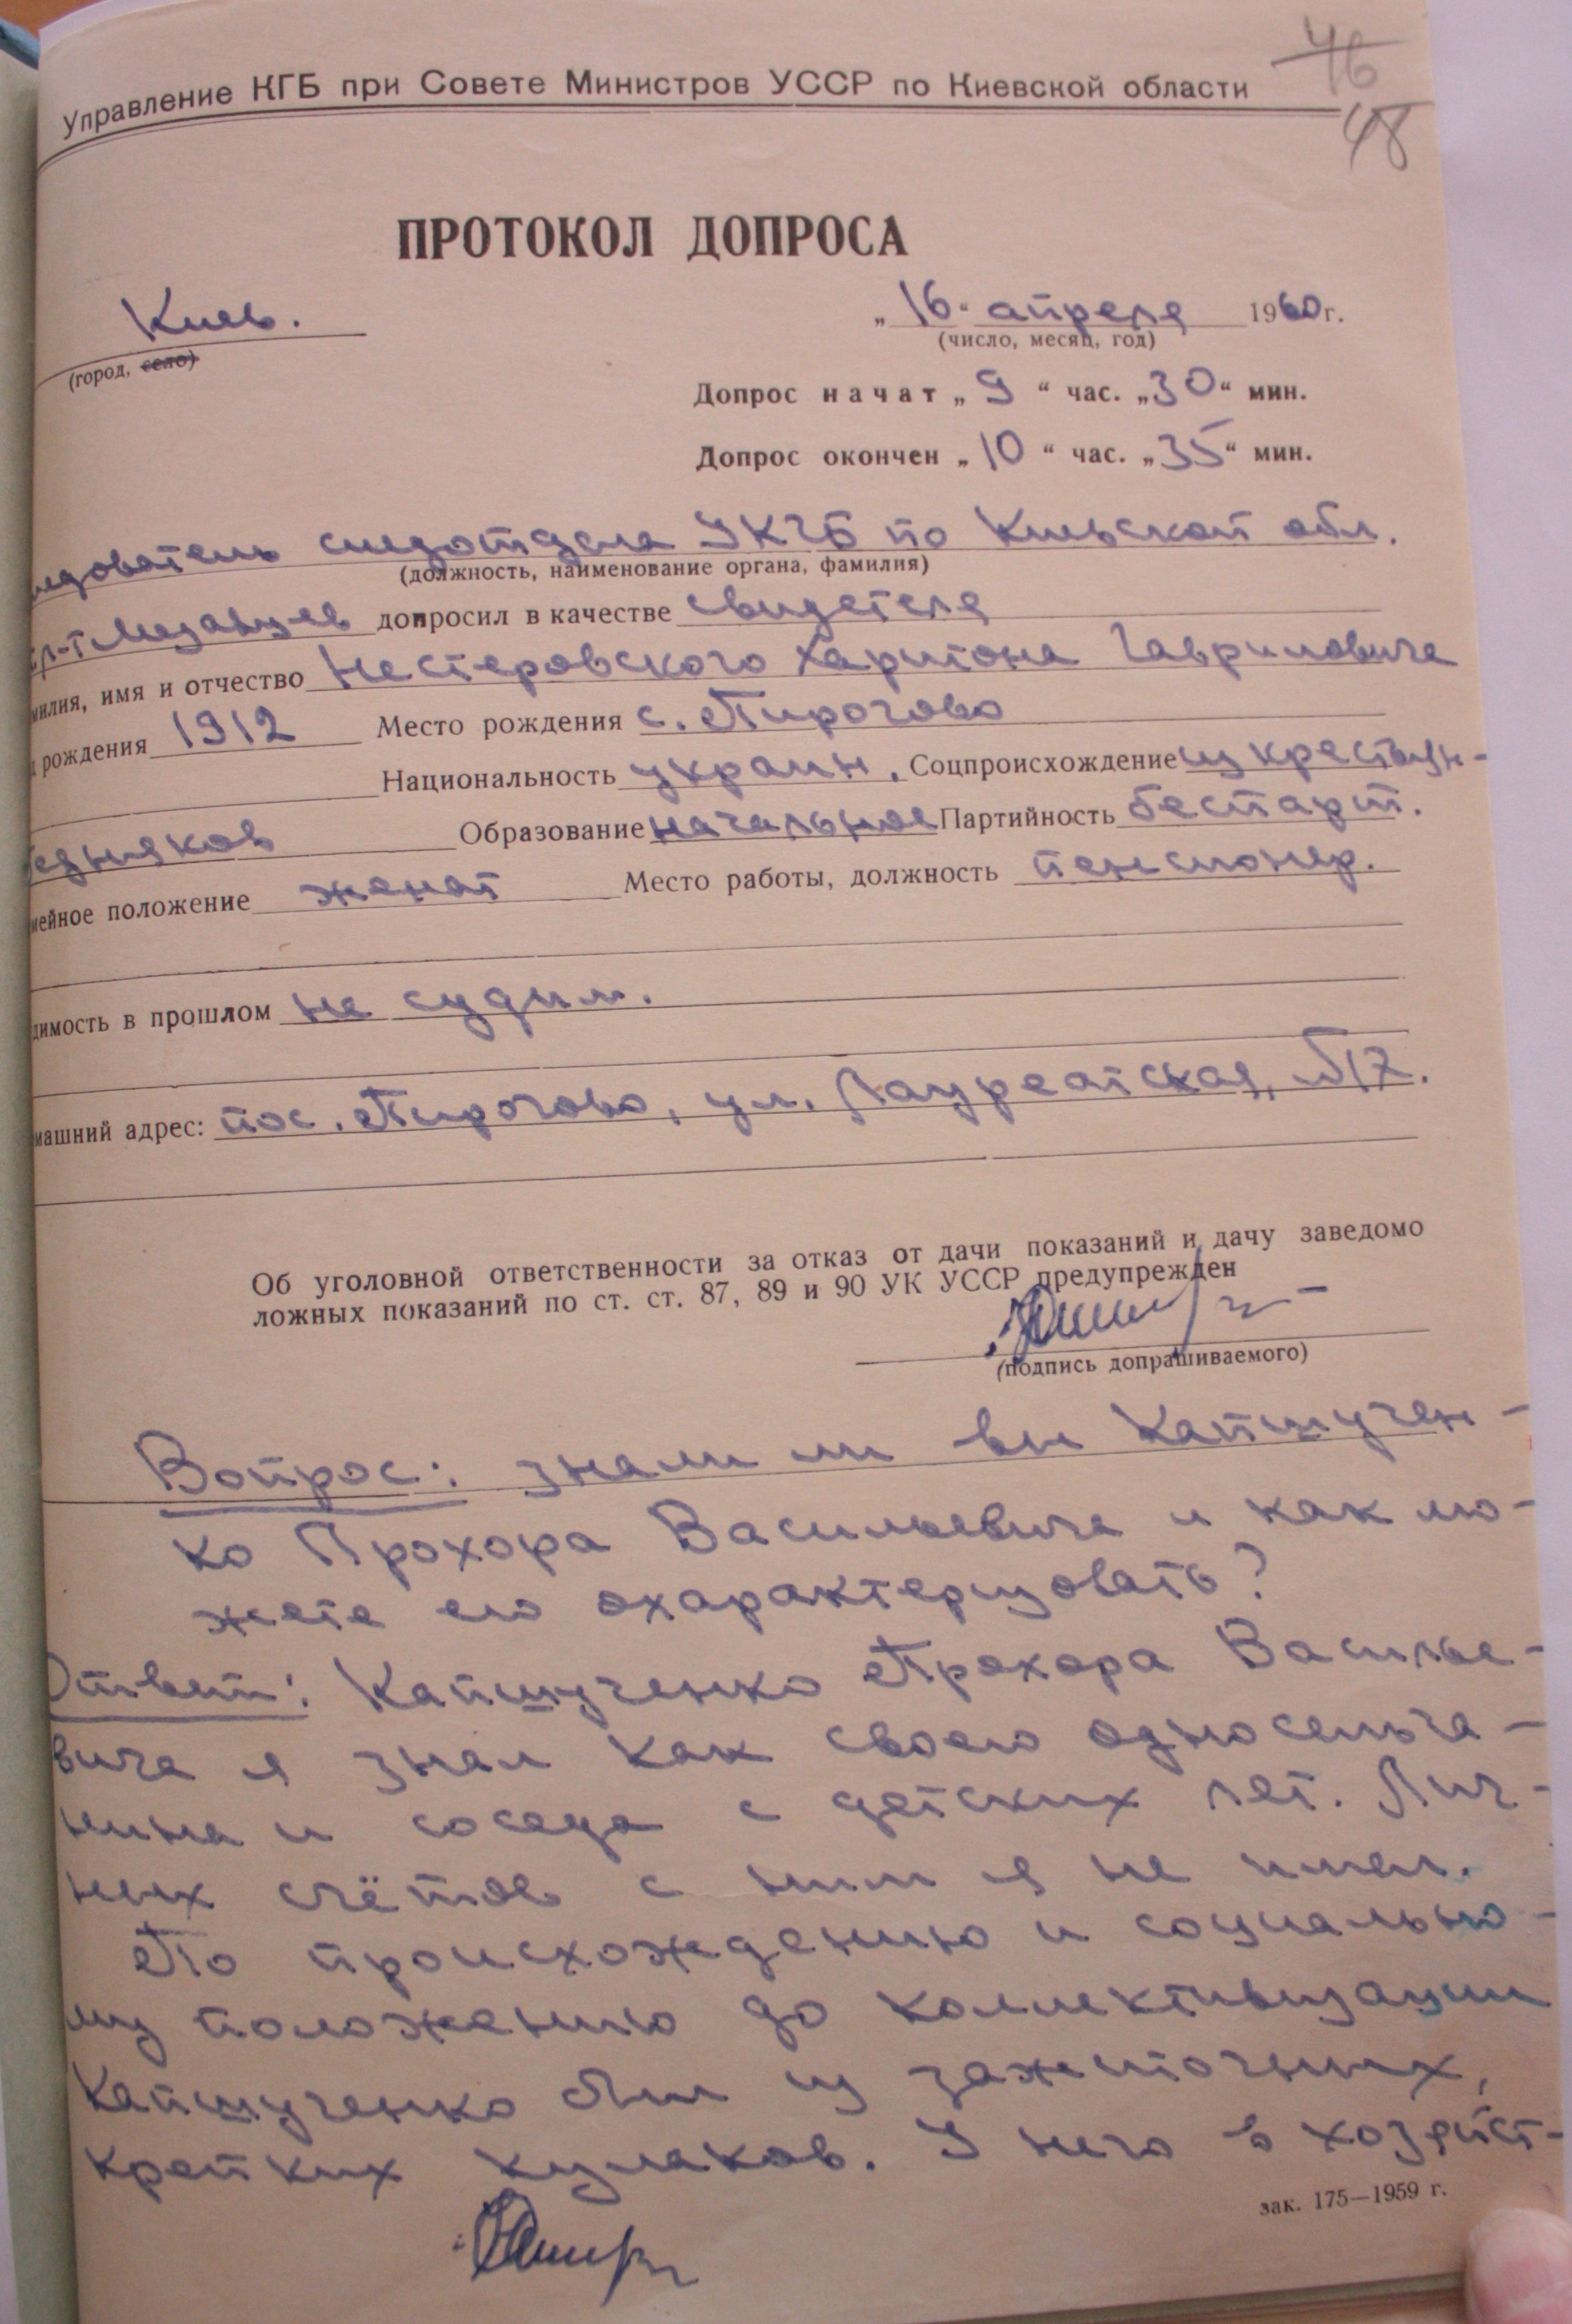 46
48
Управление КГБ при Совете Министров УССР по Киевской области
ПРОТОКОЛ ДОПРОСА
Киев.
(город, село)
„16“ апреля 1960 г.
(число, месяц, год)
Допрос начат „9“ час. „30“ мин.
Допрос окончен „10“ час. „35“ мин.
ледователь следотдела УКГБ по Киевской обл.
(должность, наименование органа, фамилия)
допросил в качестве свидетеля
милия, имя и отчество Нестеровского Харитона Гавриловича
рождения 1912 Место рождения с. Пирогово
Национальность украин. Соцпроисхождение из крестьян-
бедняков Образование начальное Партийность беспарт.
мейное положение женат Место работы, должность пенсионер.
димость в прошлом не судим.
машний адрес: пос. Пирогово, ул. Лауреатская, №17.
Об уголовной ответственности за отказ от дачи показаний и дачу заведомо
ложных показаний по ст. ст. 87, 89 и 90 УК УССР предупрежден
(подпись допрашиваемого)
Вопрос: знали ли вы Капшучен-
ко Прохора Васильевича и как мо-
жете его охарактеризовать?
Ответ: Капшученко Прохора Василье-
вича я знал как своего односельча-
нина и соседа с детских лет. Лич-
ных счётов с ним я не имел.
По происхождению и социально-
му положению до коллективизации
Капшученко был из зажиточных,
крепких кулаков. У него в хозяйст-
зак. 175—1959 г.